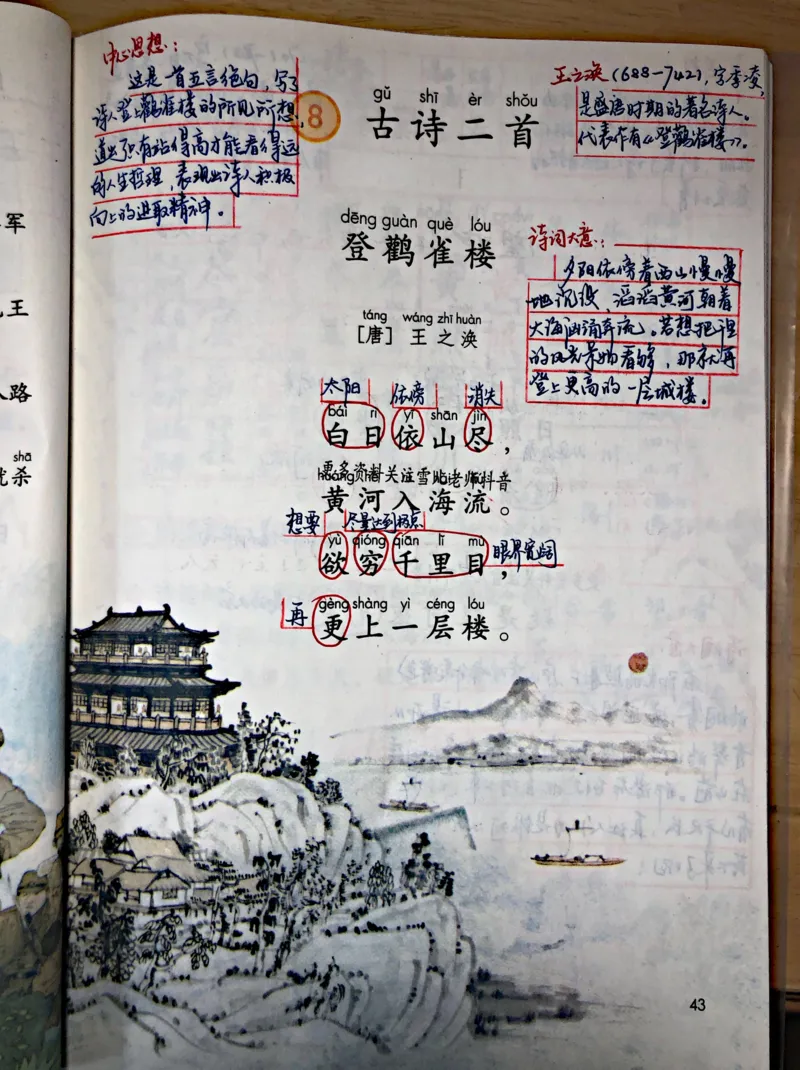 中心思想：
这是一首五言绝句，写了
诗人登上鹳雀楼的所见所想，
道出了只有站得高才能看得远
的人生哲理，表现出诗人积极
向上的进取精神。
8
gǔ shī èr shǒu
古诗二首
王之涣(688-742)，字季凌，
是盛唐时期的著名诗人。
代表作有《登鹳雀楼》。
dēng guàn què lóu
登鹳雀楼
táng wáng zhī huàn
[唐] 王之涣
诗词大意：
夕阳依傍着西山慢慢
地沉没，滔滔黄河朝着
大海汹涌奔流。若想把
的风光景物看够，那就再
登上更高的一层城楼。
太阳 依傍 消失
bái rì yī shān jìn
白日依山尽，
更多资料关注雪貼老师抖音
黄河入海流。
想要 尽量达到极点
yù qióng qiān lǐ mù
欲穷千里目， 眼界宽阔
再
gèng shàng yì céng lóu
更上一层楼。
军
王
路
shā
杀
43